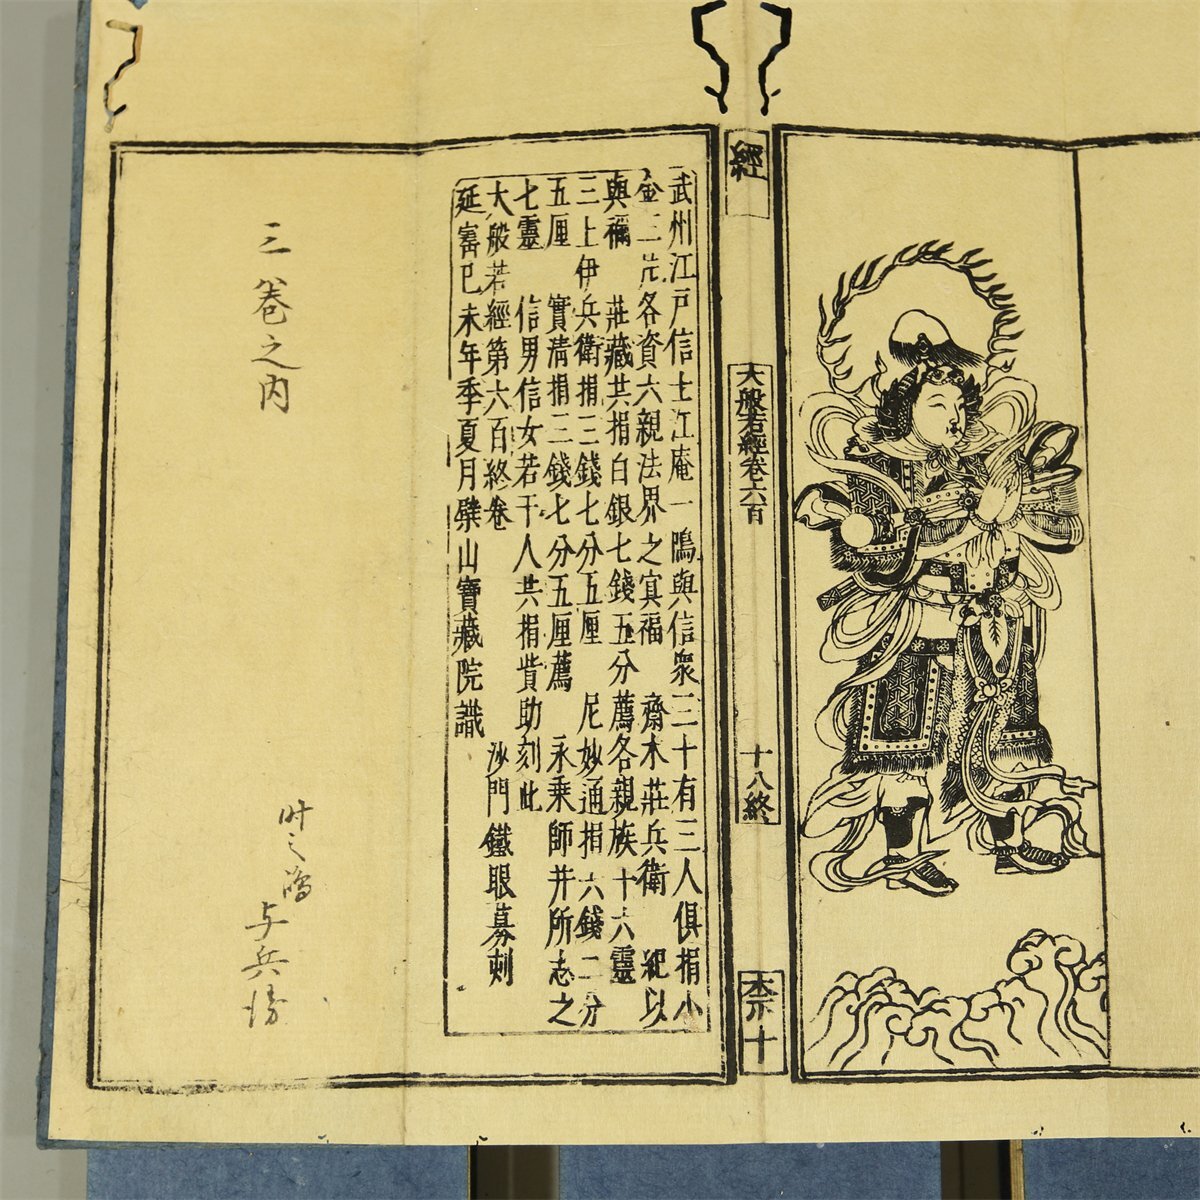 經
大般若經卷六百
十八終
柰十
武州江戸信士江庵一鳴與信衆三十有三人俱捐小
金三茫各資六親法界之冥福　齋木莊兵衛　紀以
與禰　莊藏共捐白銀七錢五分薦各親族十六靈
三上伊兵衛捐三錢七分五厘　尼妙通捐六錢二分
五厘　實清捐三錢七分五厘薦　永乘師并所志之
七靈　信男信女若干人共捐貲助刻此
大般若經第六百終卷　沙門鐵眼募刻
延寶己未年季夏月檗山寶藏院識
三卷之内
与兵